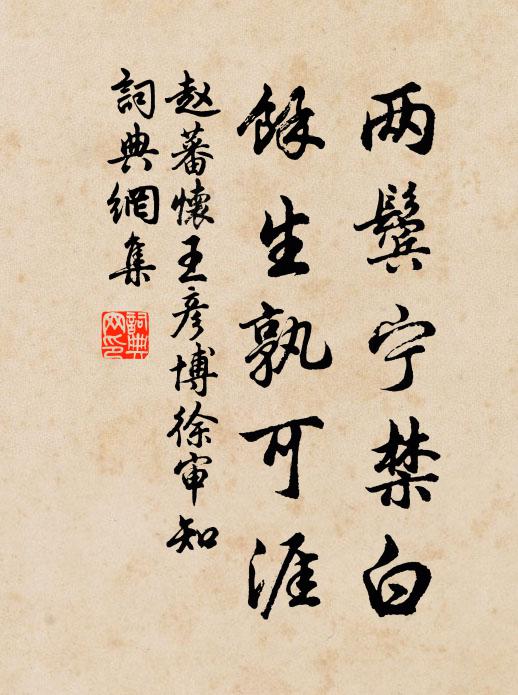 两鬓宁禁白
馀生孰可涯
赵蕃懷王彦博徐审知
詞典網集
詞典